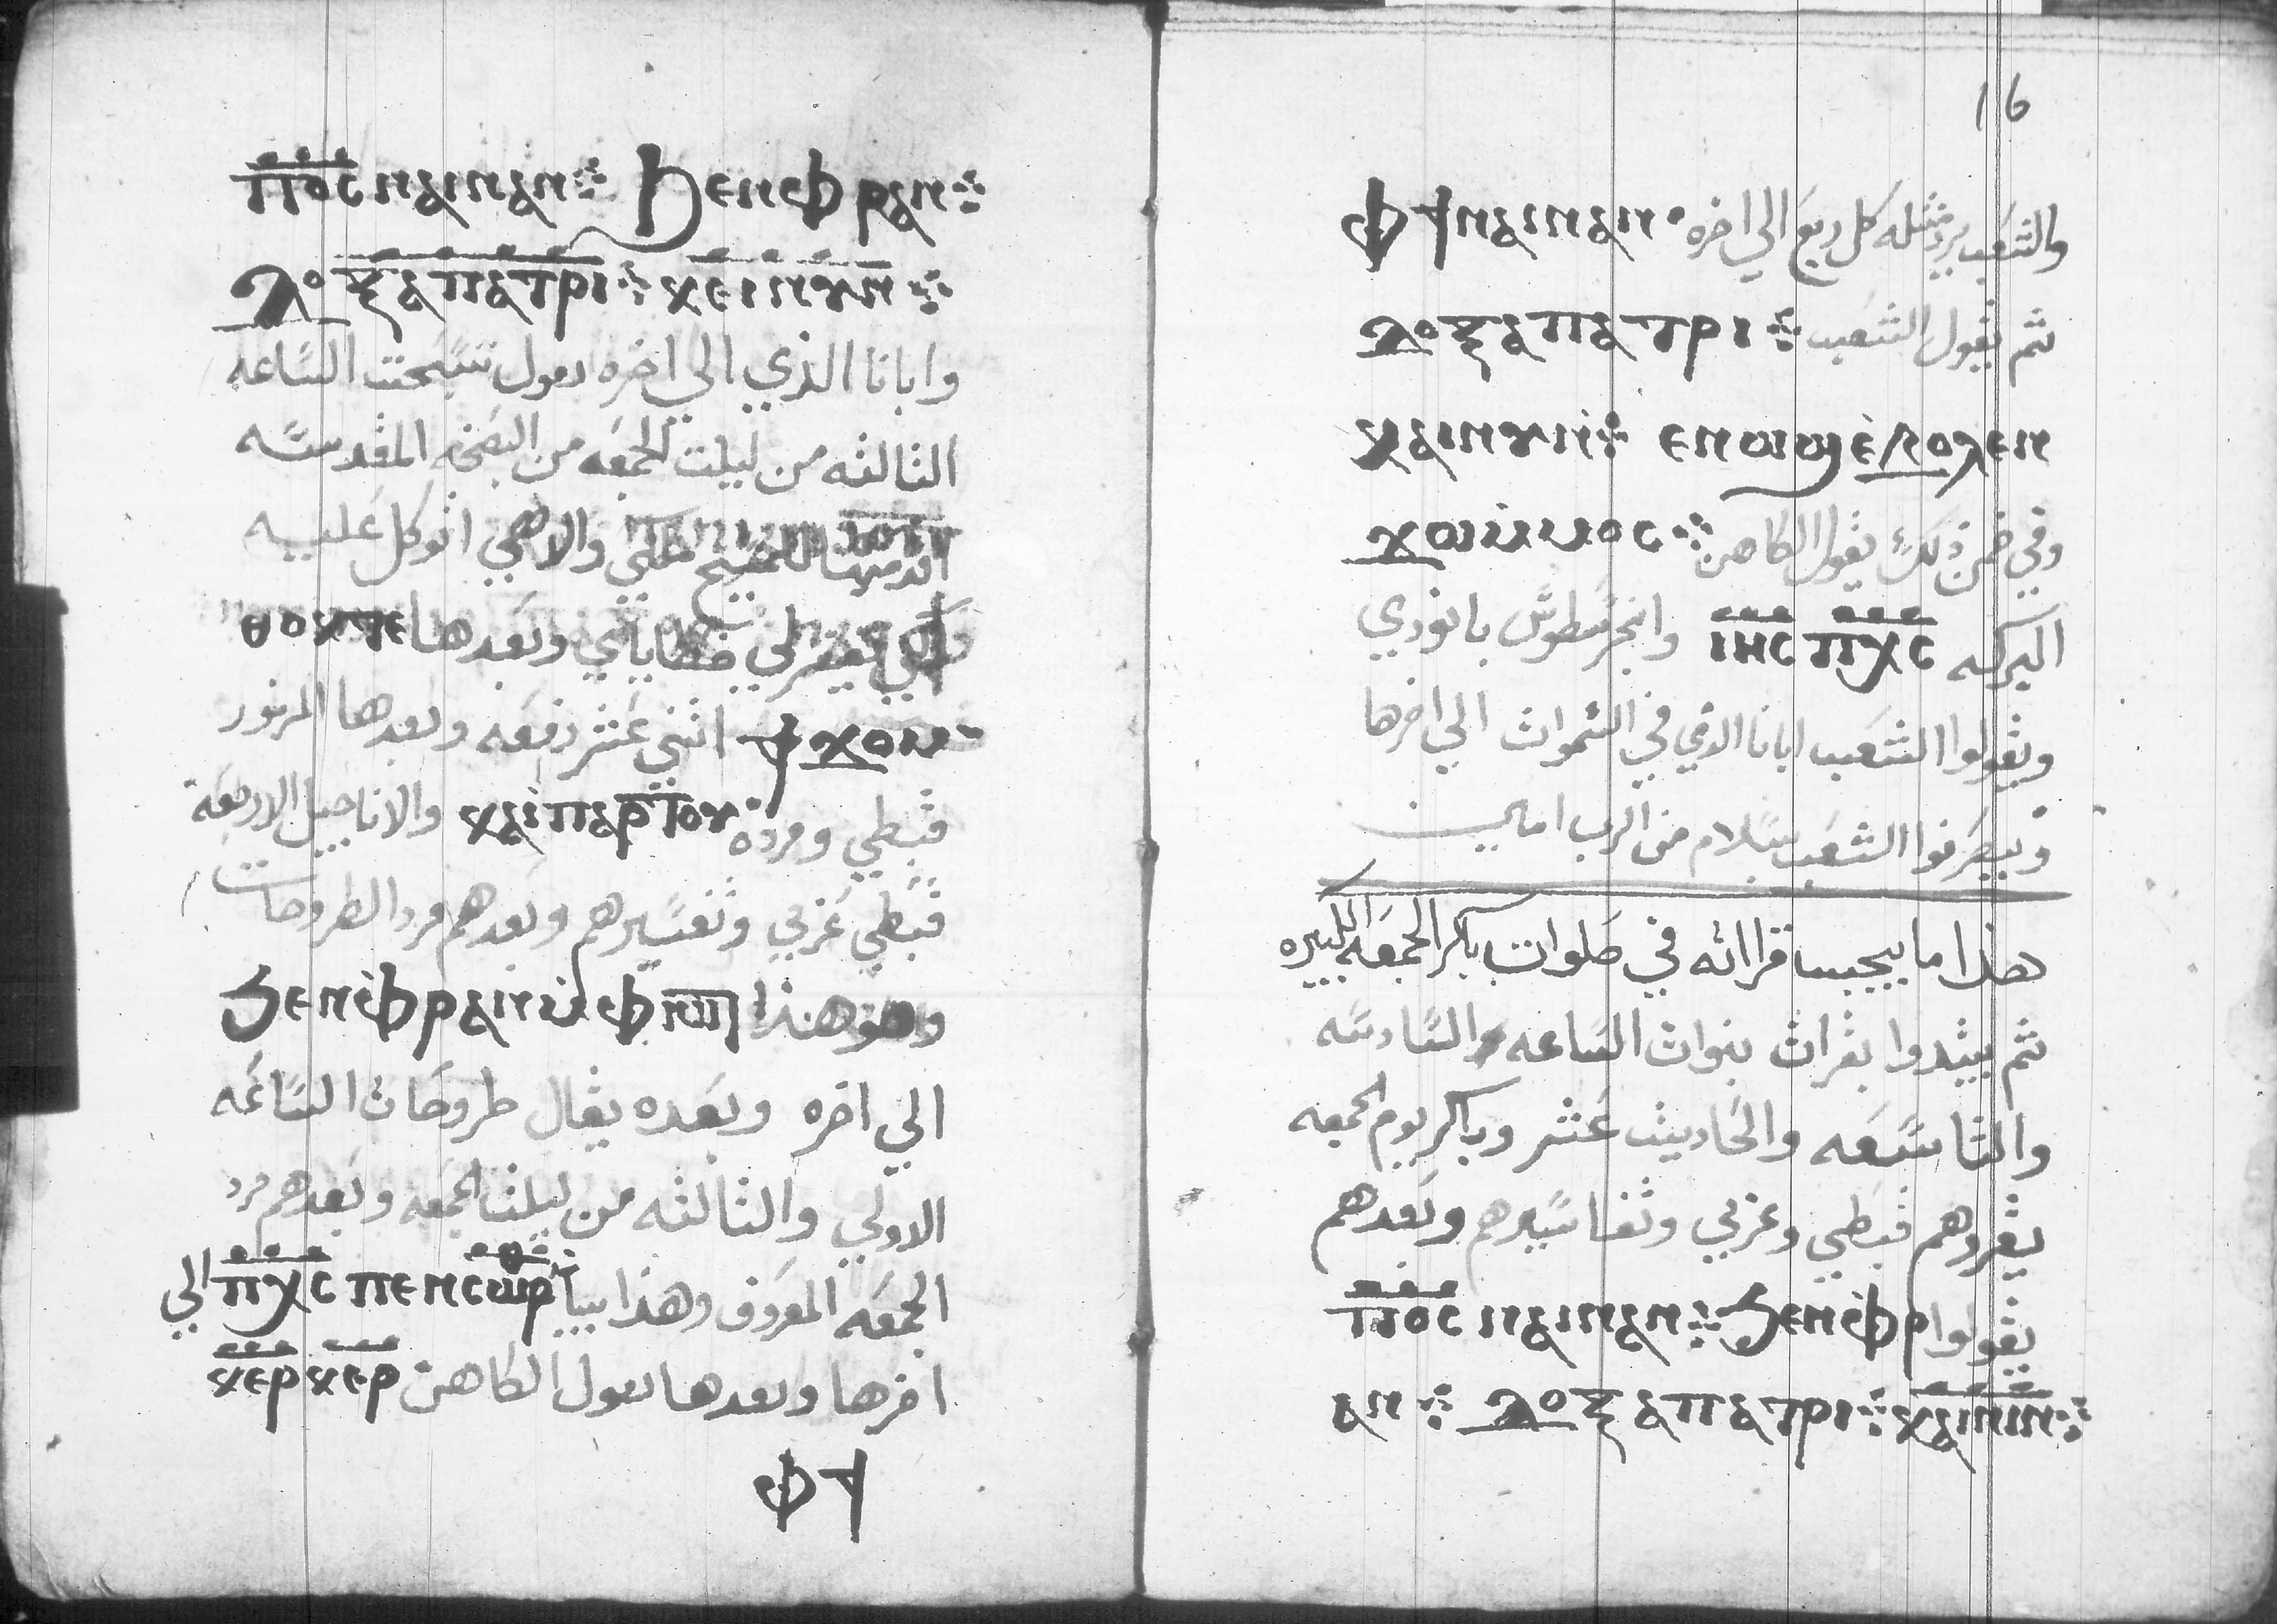 ⲡ̅ⲟ̅ⲥ̅ ⲛⲁⲓⲛⲁⲛ ⳉⲉⲛⲫⲣⲁⲛ
ⲇⲟⲝⲁⲡⲁⲧⲣⲓ ⲕⲉⲓⲛⲩⲛ
وابانا الذي الي اخره تسبحت الساعه
الثالثه من ليلت الجمعه من البصخه المقدسه
للمسيح ملكي والاهي اتوكل عليه
يغفر لي خطاياي وبعدها ⲑⲟⲕⲧⲉ
ϯϫⲟⲙ اثني عشر دفعه وبعدها المزمور
قبطي ومرده ⲕⲁⲓⲡⲁⲣⲧⲟⲩ والاناجيل الاربعه
قبطي عربي وتفسيرهم وبعدهم مرد الطروحات
وهو هذا ϧⲉⲛⲫⲣⲁⲛⲙⲫⲓⲱⲧ
الي اخره وبعده يقال طروحات الساعه
الاولي والثالثه من ليلت الجمعه وبعدهم مرد
الجمعه المعروف وهذا ⲡ̅ⲭ̅ⲥ̅ ⲡⲉⲛⲥⲱⲣ الي
اخرها وبعدها يقول الكاهن ⲕⲉⲣ ⲕⲉⲣ
ⲫϯ
16
ⲫϯⲛⲁⲓⲛⲁⲛ والشعب يرد مثله كل ربع الي اخره
ثم يقول الشعب ⲇⲟⲝⲁⲡⲁⲧⲣⲓ
ⲕⲁⲓⲛⲩⲛ ⲉⲛⲱϣⲉⲃⲟⲗϧⲉⲛ
ϫⲱⲙⲙⲟⲥ وفي ضمن ذلك يقول الكاهن
البركه ⲓ̅ⲏ̅ⲥ̅ ⲡ̅ⲭ̅ⲥ̅ وانخرسطوس بانودي
ويقولوا الشعب ابانا الذي في السموات الي اخرها
ويصرفوا الشعب بسلام من الرب امين
هذا ما يجب قرااته في صلوات باكر الجمعه الكبيره
ثم يبتدوا بقرات نبوات الساعه والسادسه
والتاسعه والحاديث عشر وباكر يوم الجمعه
يقروهم قبطي وعربي وتفاسيرهم وبعدهم
يقولوا ⲡ̅ⲟ̅ⲥ̅ ⲛⲁⲓⲛⲁⲛ ϧⲉⲛⲫⲣ
ⲁⲛ ⲇⲟⲝⲁⲡⲁⲧⲣⲓ ⲕⲁⲓⲛⲓⲛ